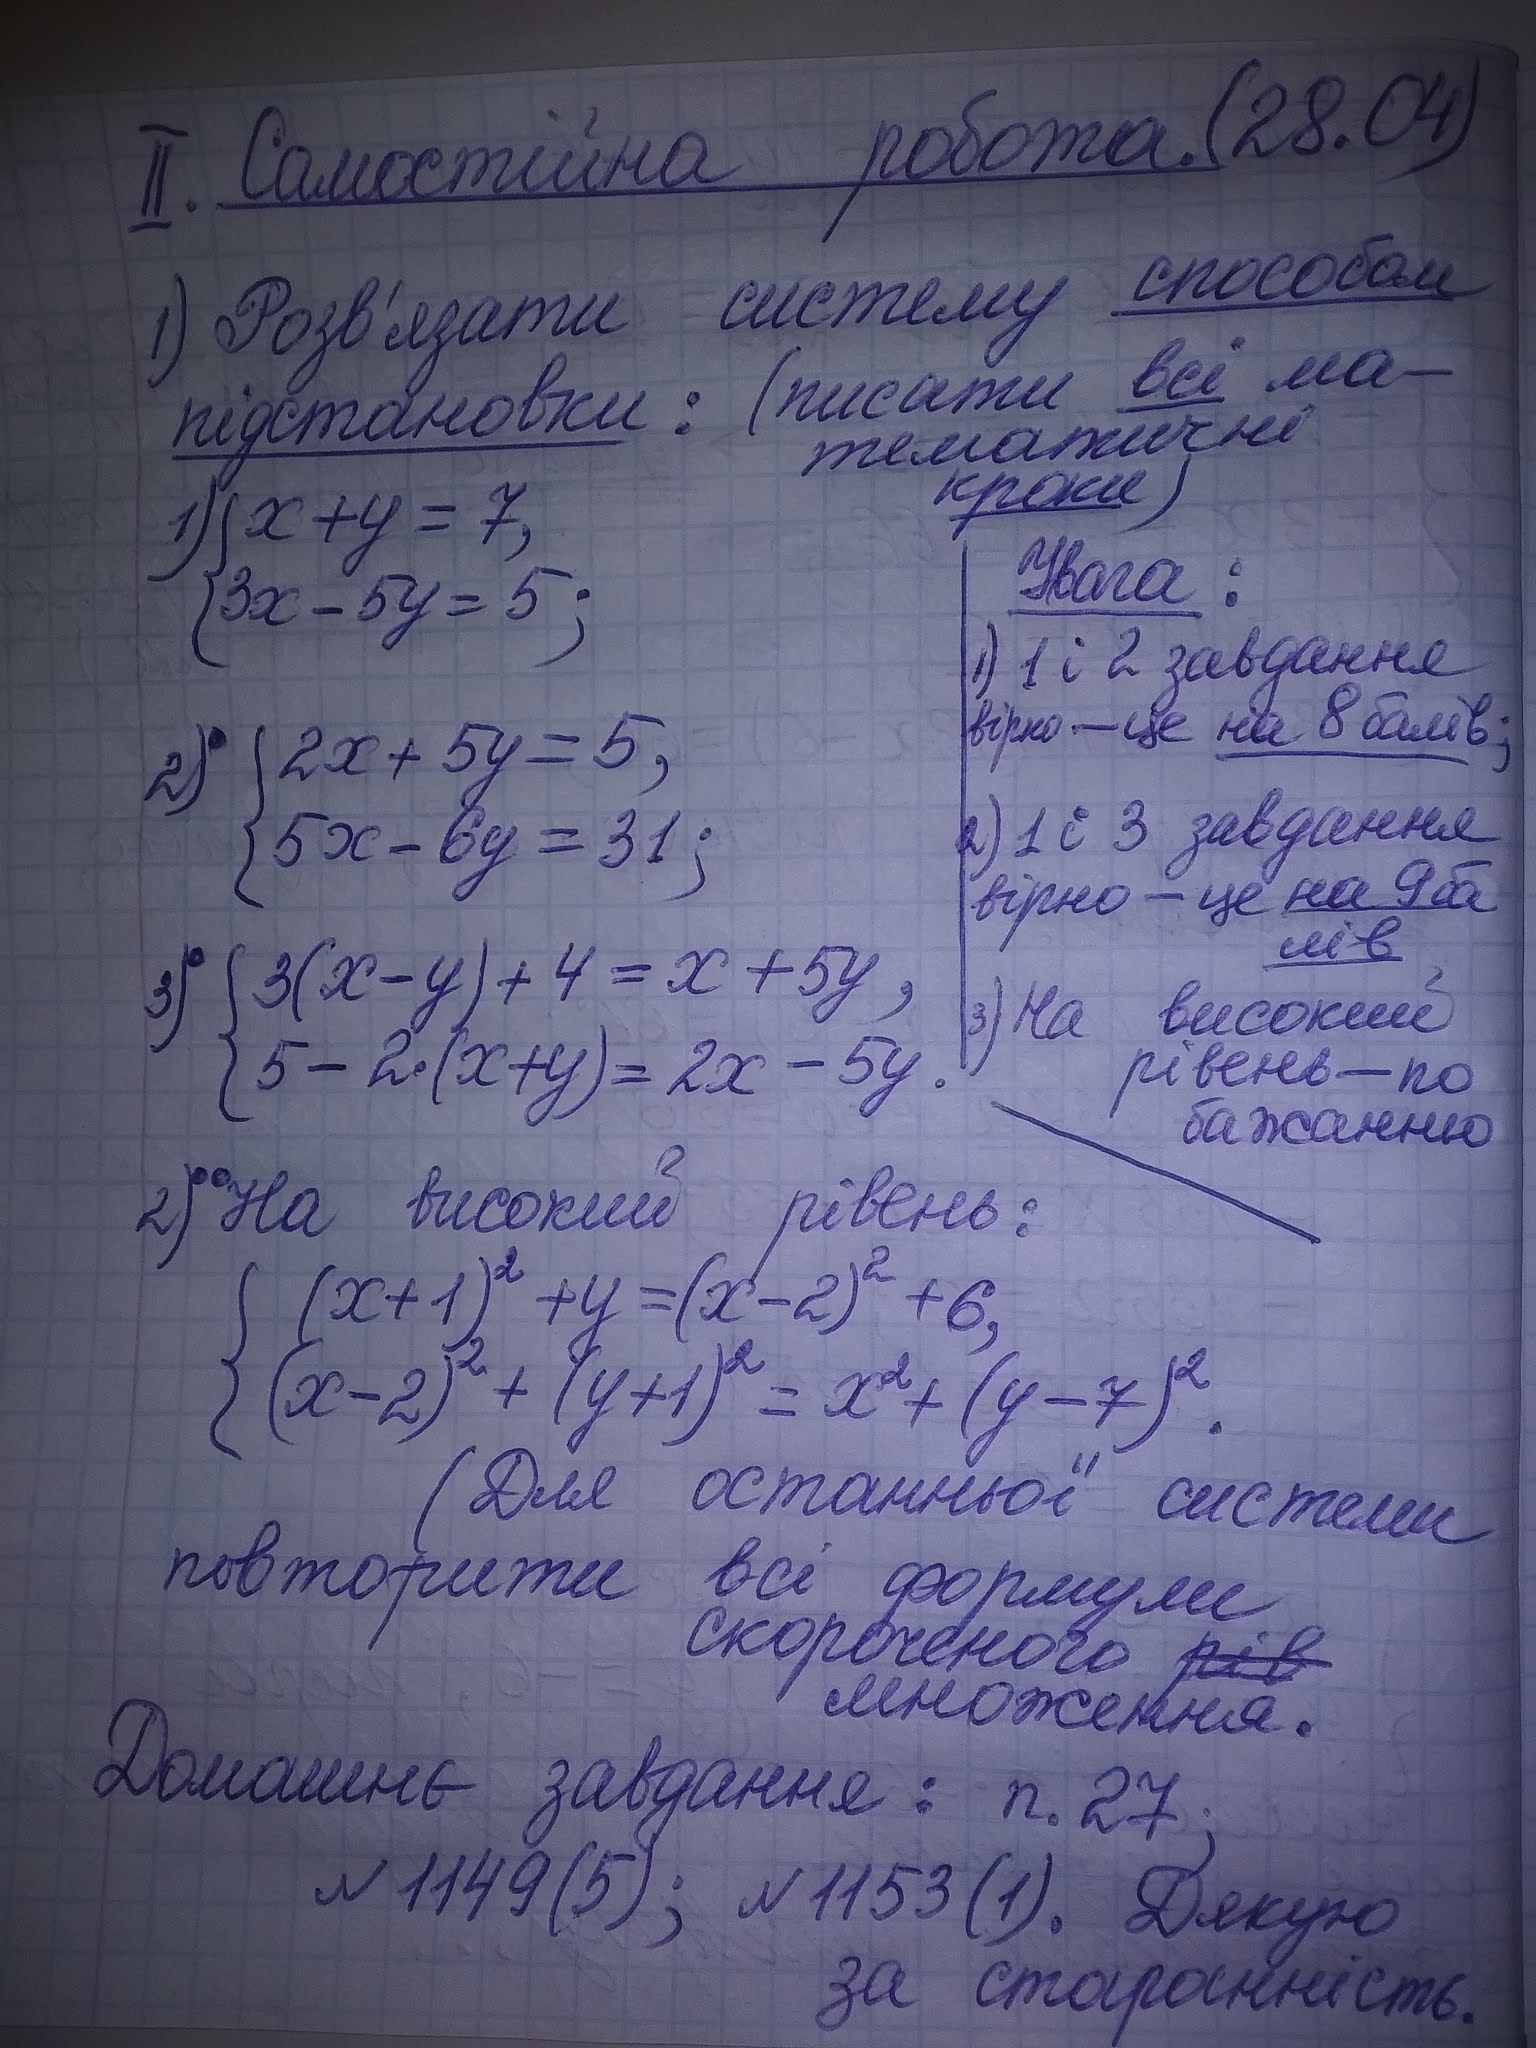 II. Самостійна робота. (28.04)
1) Розв'язати систему способом
підстановки: (писати всі ма-
тематичні
кроки)
1) { x + y = 7,
{ 3x - 5y = 5;
2)° { 2x + 5y = 5,
{ 5x - 6y = 31;
3)° { 3(x - y) + 4 = x + 5y,
{ 5 - 2·(x+y) = 2x - 5y.
Увага:
1) 1 і 2 завдання
вірно — це на 8 балів;
2) 1 і 3 завдання
вірно — це на 9 ба
лів
3) На високий
рівень — по
бажанню
2)°° На високий рівень:
{ (x+1)² + y = (x-2)² + 6,
{ (x-2)² + (y+1)² = x² + (y-7)².
(Для останньої системи
повторити всі формули
скороченого рів
множення.
Домашнє завдання: п. 27;
№1149(5); №1153(1). Дякую
за старанність.